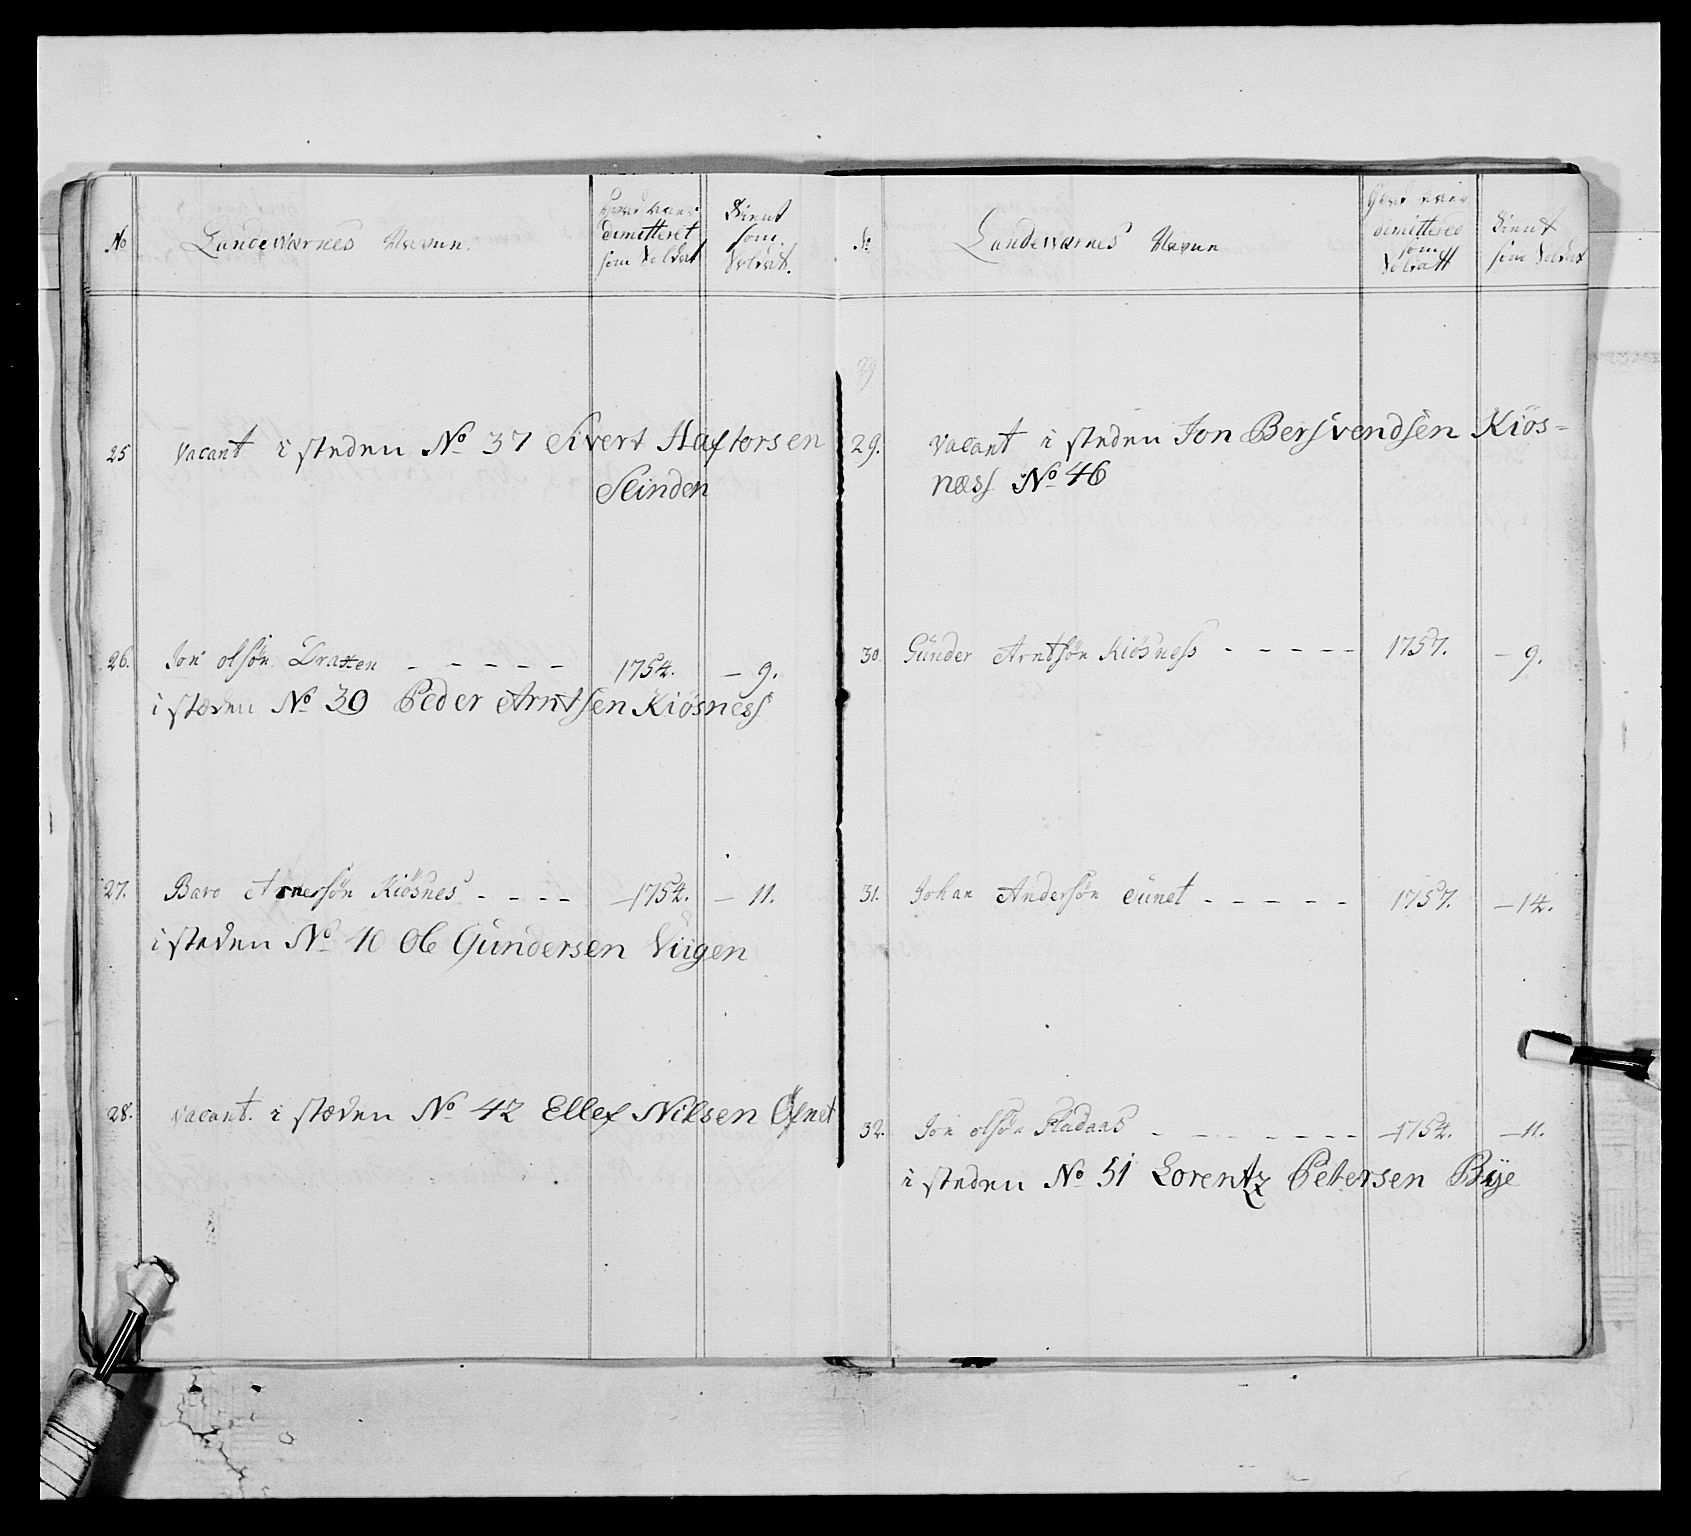 No
Landeværnes Navne.
Hvad aar
dimitteret
som Soldat
Tient
som
Soldat.
25 Vacant i steden No 37 Sivert Haftorsen
Slinden
26. Jon olsön Draxen - - - - - 1754. - 9.
i stæden No 39 Peder Arntsen Kiösness
27. Baro Arnesön Kiösnes - - - - 1754. - 11.
i steden No 40 Ole Gundersen Viigen
28. vacant. i stæden No 42 Ellef Nilsen Öfnet
No
Landeværnes Navne
Hvad aar
dimittered
som
Soldatt
Tient
som Soldat
29
29. Vacant i steden Jon Bersvendsen Kiös-
næss No 46
30. Günder Arndsön Kiösness - - - - - 1757. - 9.
31. Johan Andersön eünet - - - - - 1757. - 14.
32. Jon olsön Fladaas - - - - - - 1754. - 11.
i steden No 51 Lorentz Petersen Bye